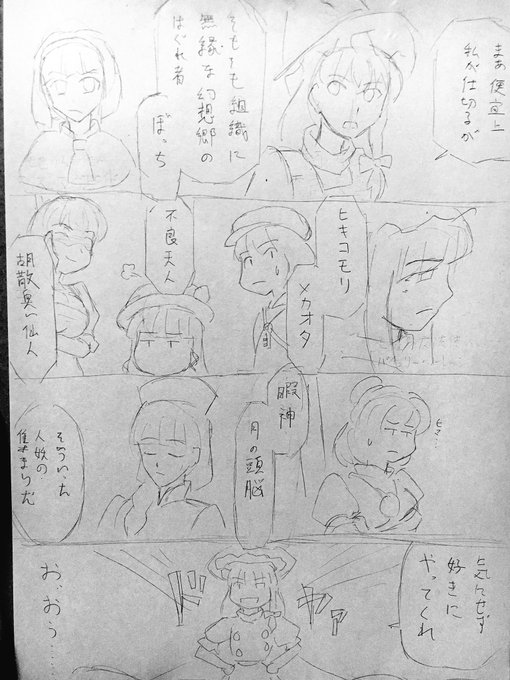 まあ便宜上
私が仕切るが
そもそも組織に
無縁な幻想郷の
はぐれ者
ぼっち
ヒキコモリ
メカオタ
不良天人
胡散臭い仙人
ヒマ…
暇神
月の頭脳
そういった
人妖の
集まりだ
気にせず
好きに
やってくれ
お、おう……